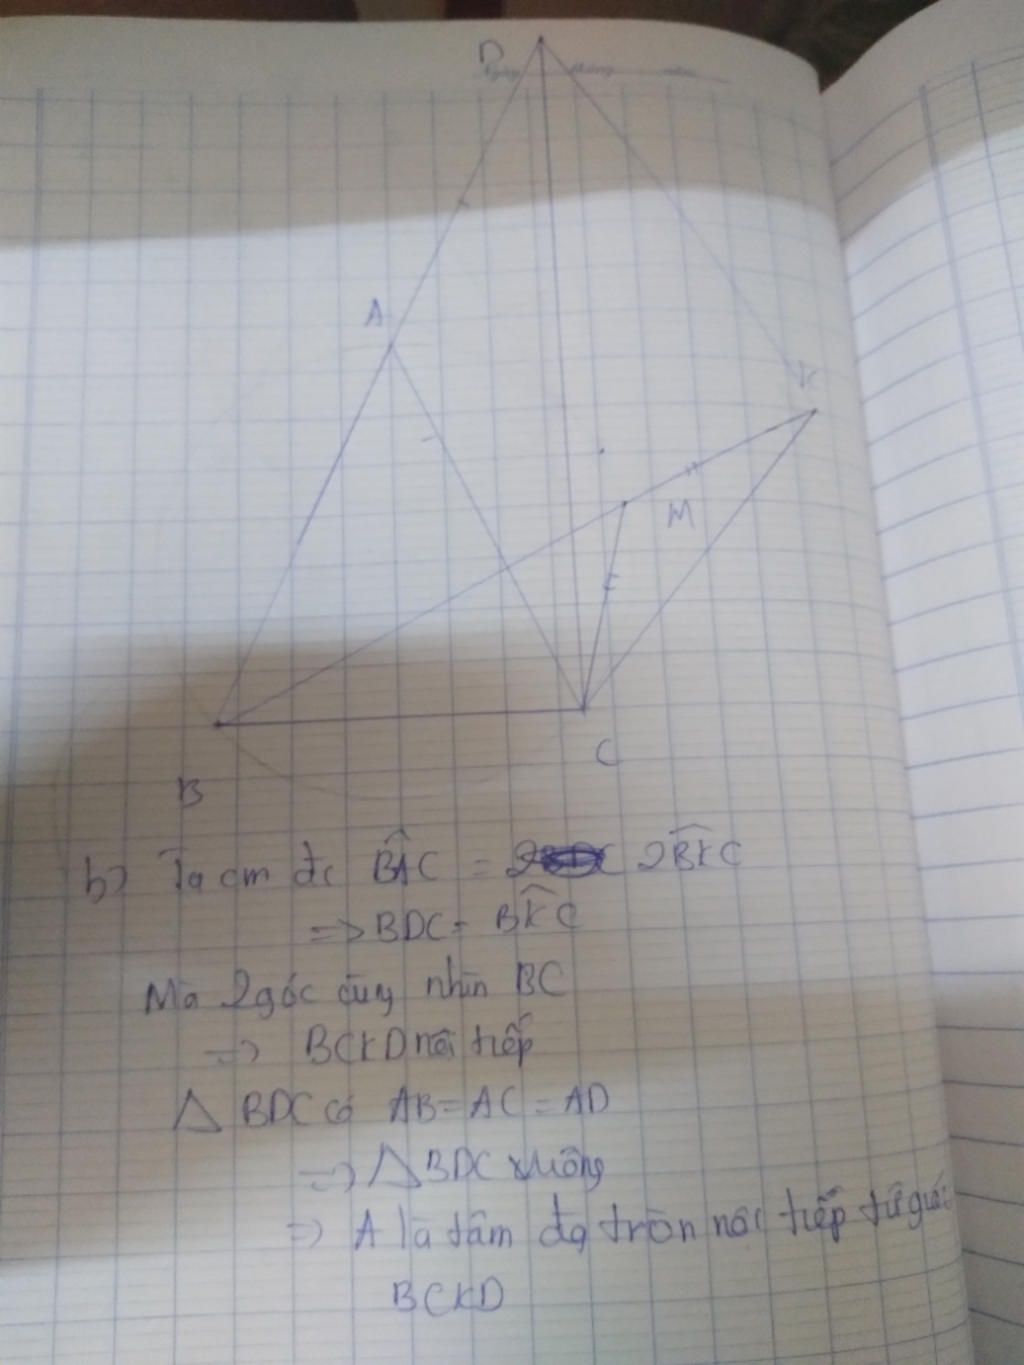 D
A
K
M
C
B
b) Ta cm đc BAC = 2BKC
=> BDC = BKC
Mà 2 góc cùng nhìn BC
=> BCKD nội tiếp
△ BDC có AB = AC = AD
=> △ BDC vuông
=> A là tâm đg tròn nội tiếp tứ giác
BCKD